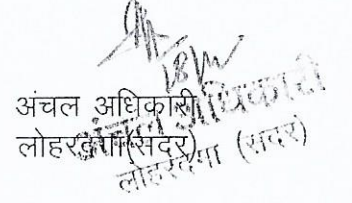 अंचल अधिकारी
लोहरदगा(सदर)
अंचल अधिकारी
लोहरदगा (सदर)